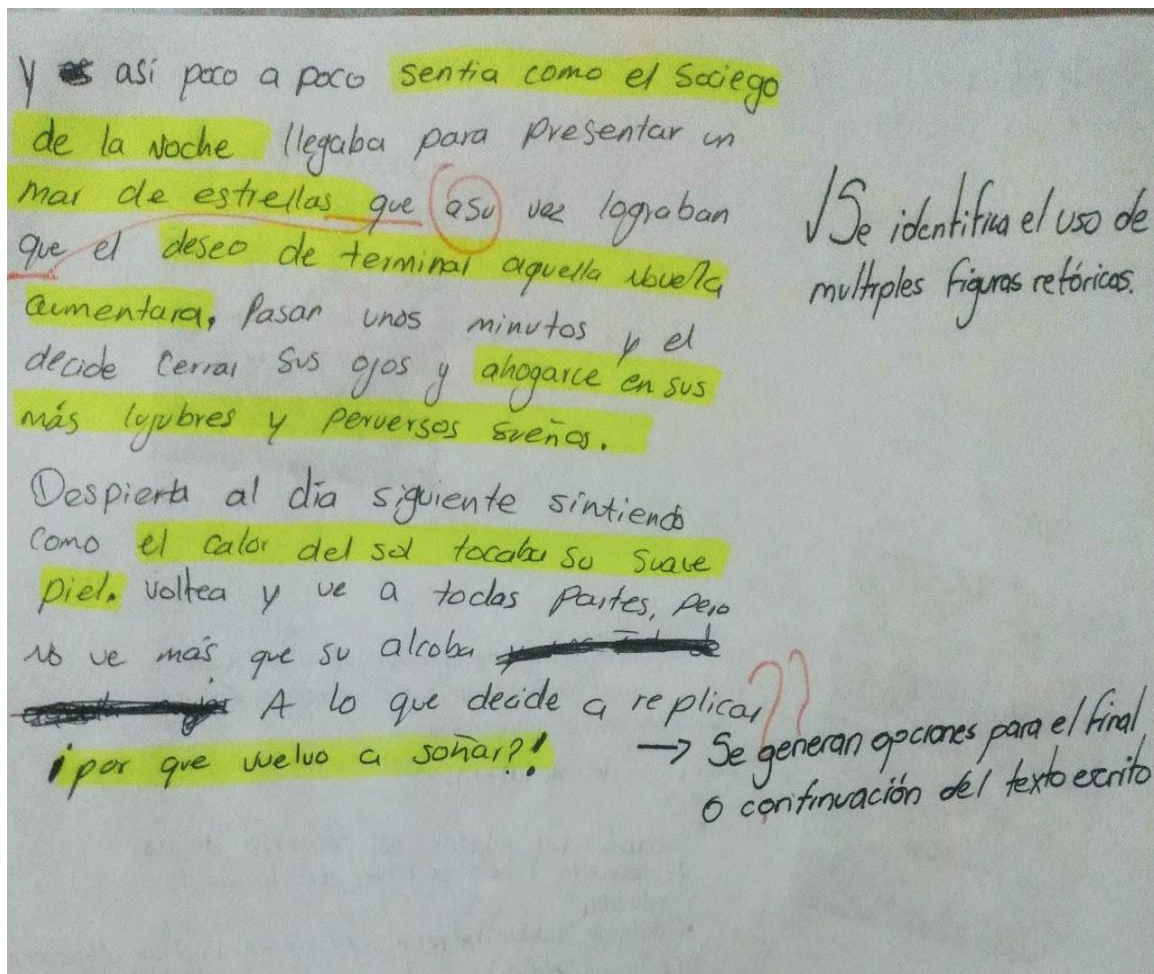 y así poco a poco sentia como el Sociego
de la Noche llegaba para presentar un
mar de estrellas que asu vez lograban
que el deseo de terminal aquella
aumentara, Pasan unos minutos y el
decide cerrar sus ojos y ahogarce en sus
más lujubres y perversos sueños.
Despierta al día siguiente sintiendo
como el calor del sol tocaba su suave
piel. voltea y ve a todas partes, pero
no ve más que su alcoba
A lo que decide a replicar
¡por que vuelvo a soñar?!
√ Se identifica el uso de
multiples figuras retóricas.
??
→ Se generan opciones para el final
o continuación del texto escrito